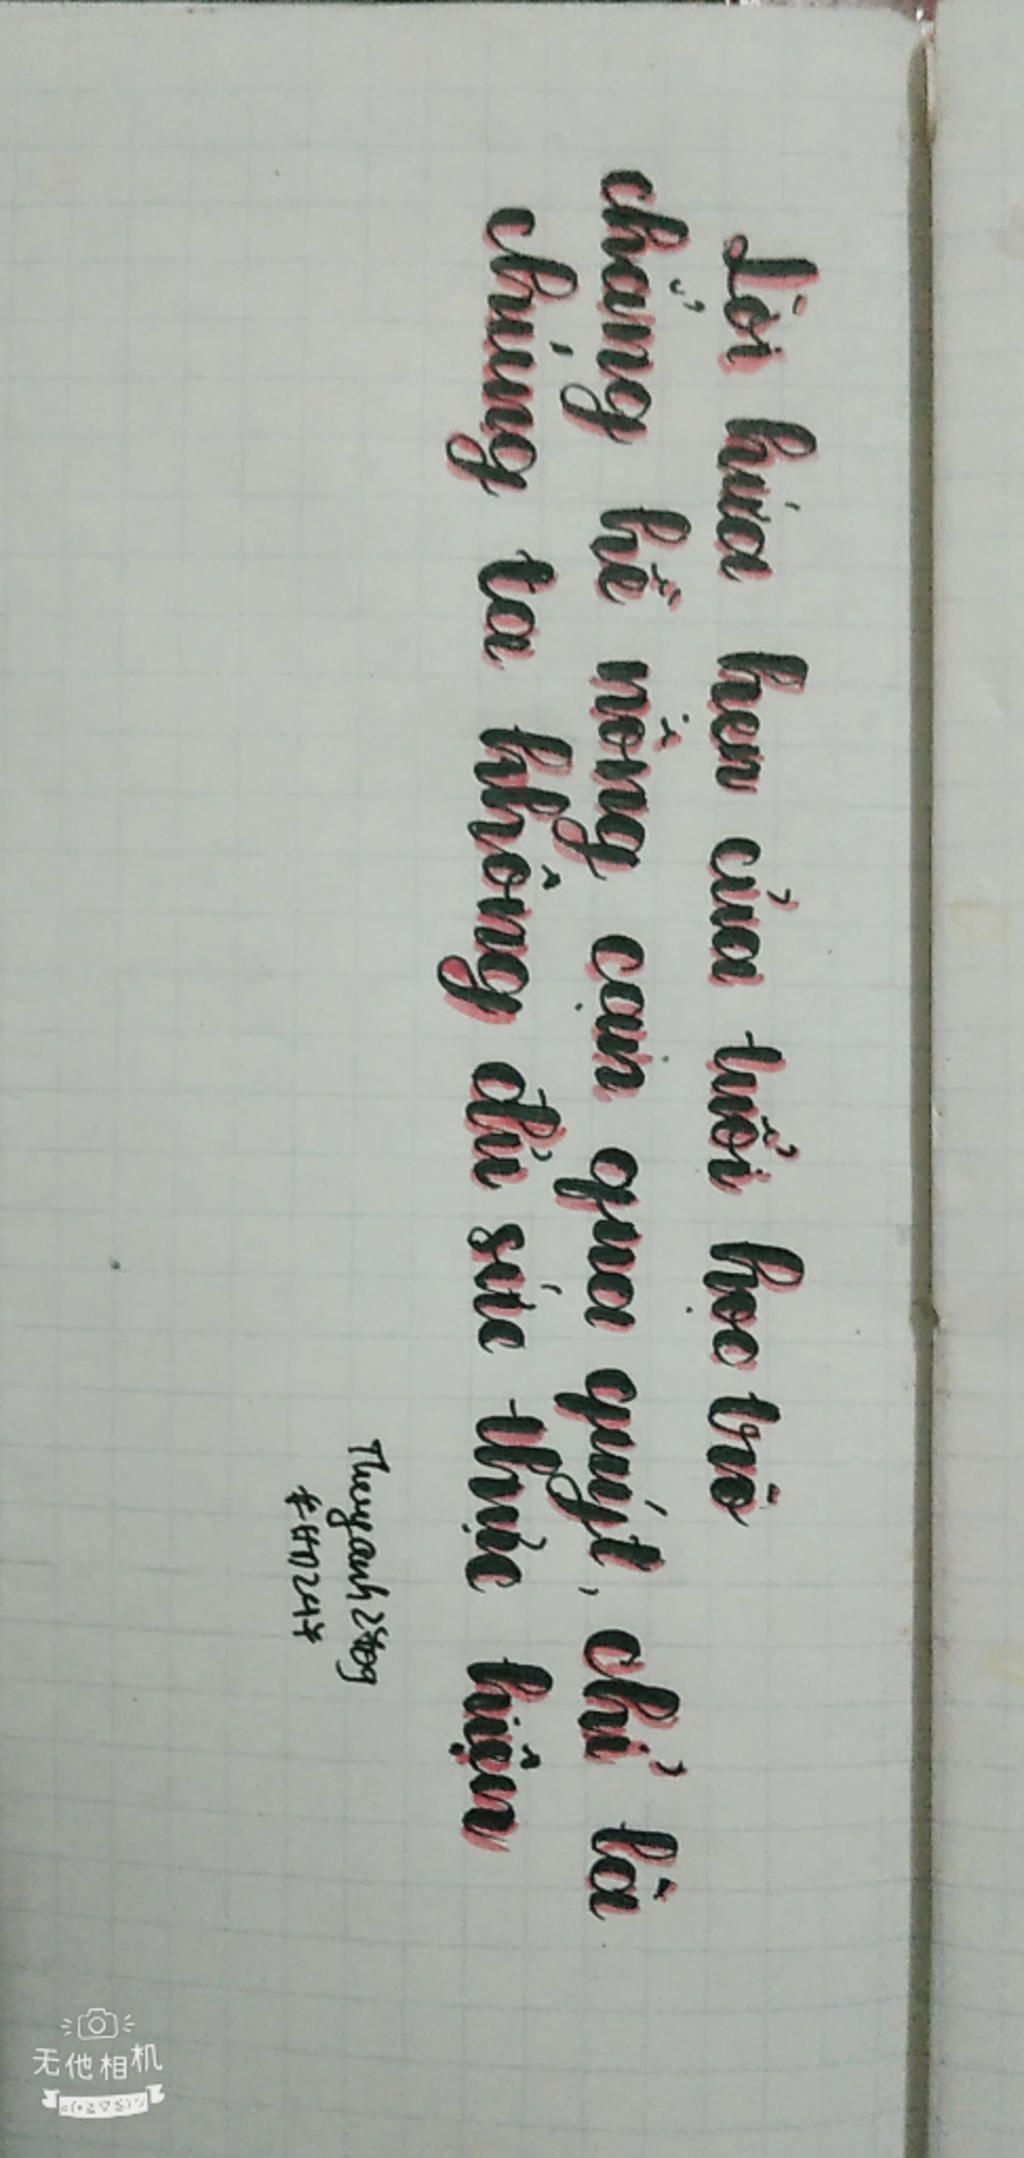 Lời hứa hẹn của tuổi học trò
chẳng hề nồng cạn qua quýt, chỉ là
chúng ta không đủ sức thực hiện
无他相机